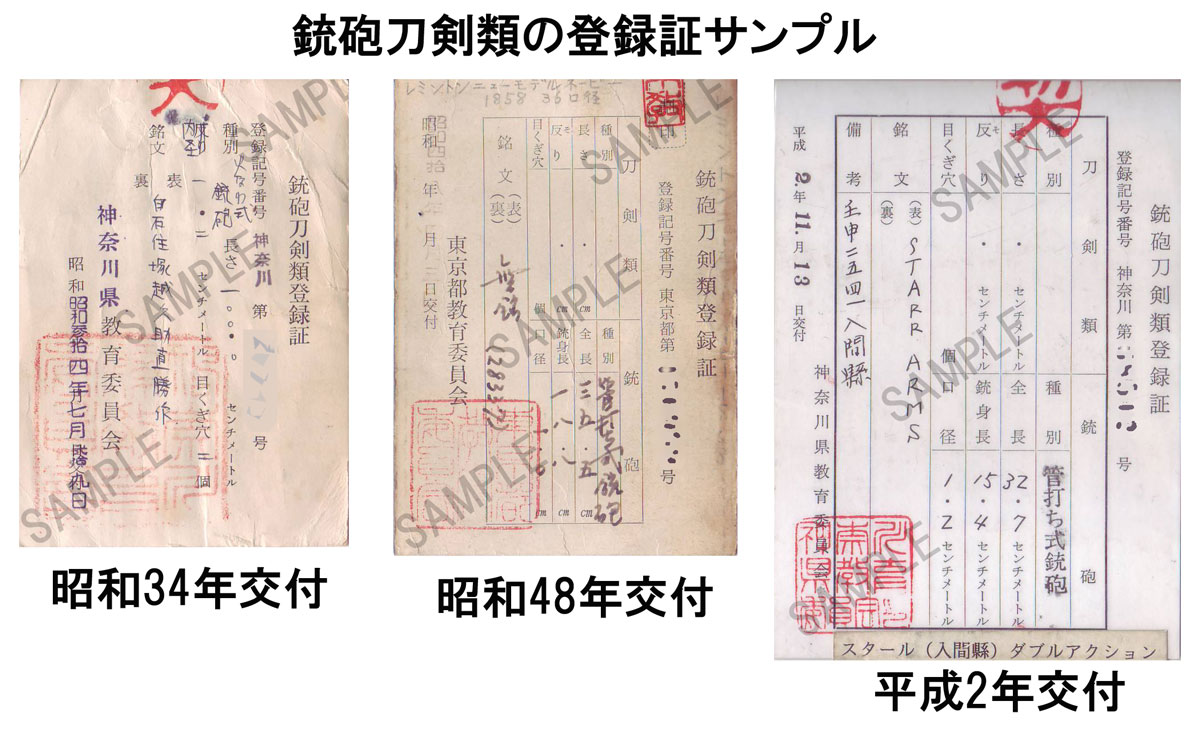 銃砲刀剣類の登録証サンプル
銃砲刀剣類登録証
登録記号番号 神奈川 第 号
種別 火なわ式銃砲 長さ 一〇〇・〇 センチメートル
反り 内径 一・二 センチメートル 目くぎ穴 二 個
銘文 表 白石住塚越久之助直勝作
裏
神奈川県教育委員会
昭和 昭和参拾四年七月拾九日
SAMPLE
SAMPLE
SAMPLE
昭和34年交付
レミントンニューモデルネービー
1858 36口径
銃砲刀剣類登録証
登録記号番号 東京都第 号
刀剣類
種別
長さ ・ cm
反り ・ cm
目くぎ穴 個
銃砲
種別 管打式銃砲
全長 三五・五 cm
銃身長 一八・八 cm
口径 cm
銘文 (表) 無銘 (28337)
(裏)
昭和 年 月 三日交付
東京都教育委員会
SAMPLE
SAMPLE
SAMPLE
昭和48年交付
銃砲刀剣類登録証
登録記号番号 神奈川 第 号
刀剣類
種別
長さ ・ センチメートル
反り ・ センチメートル
目くぎ穴 個
銃砲
種別 管打ち式銃砲
全長 32・7 センチメートル
銃身長 15・4 センチメートル
口径 1・2 センチメートル
銘文 (表) STARR ARMS
(裏)
備考 壬申二五四一入間縣
平成 2.年 11.月 13 日交付
神奈川県教育委員会
SAMPLE
SAMPLE
SAMPLE
スタール(入間縣)ダブルアクション
平成2年交付